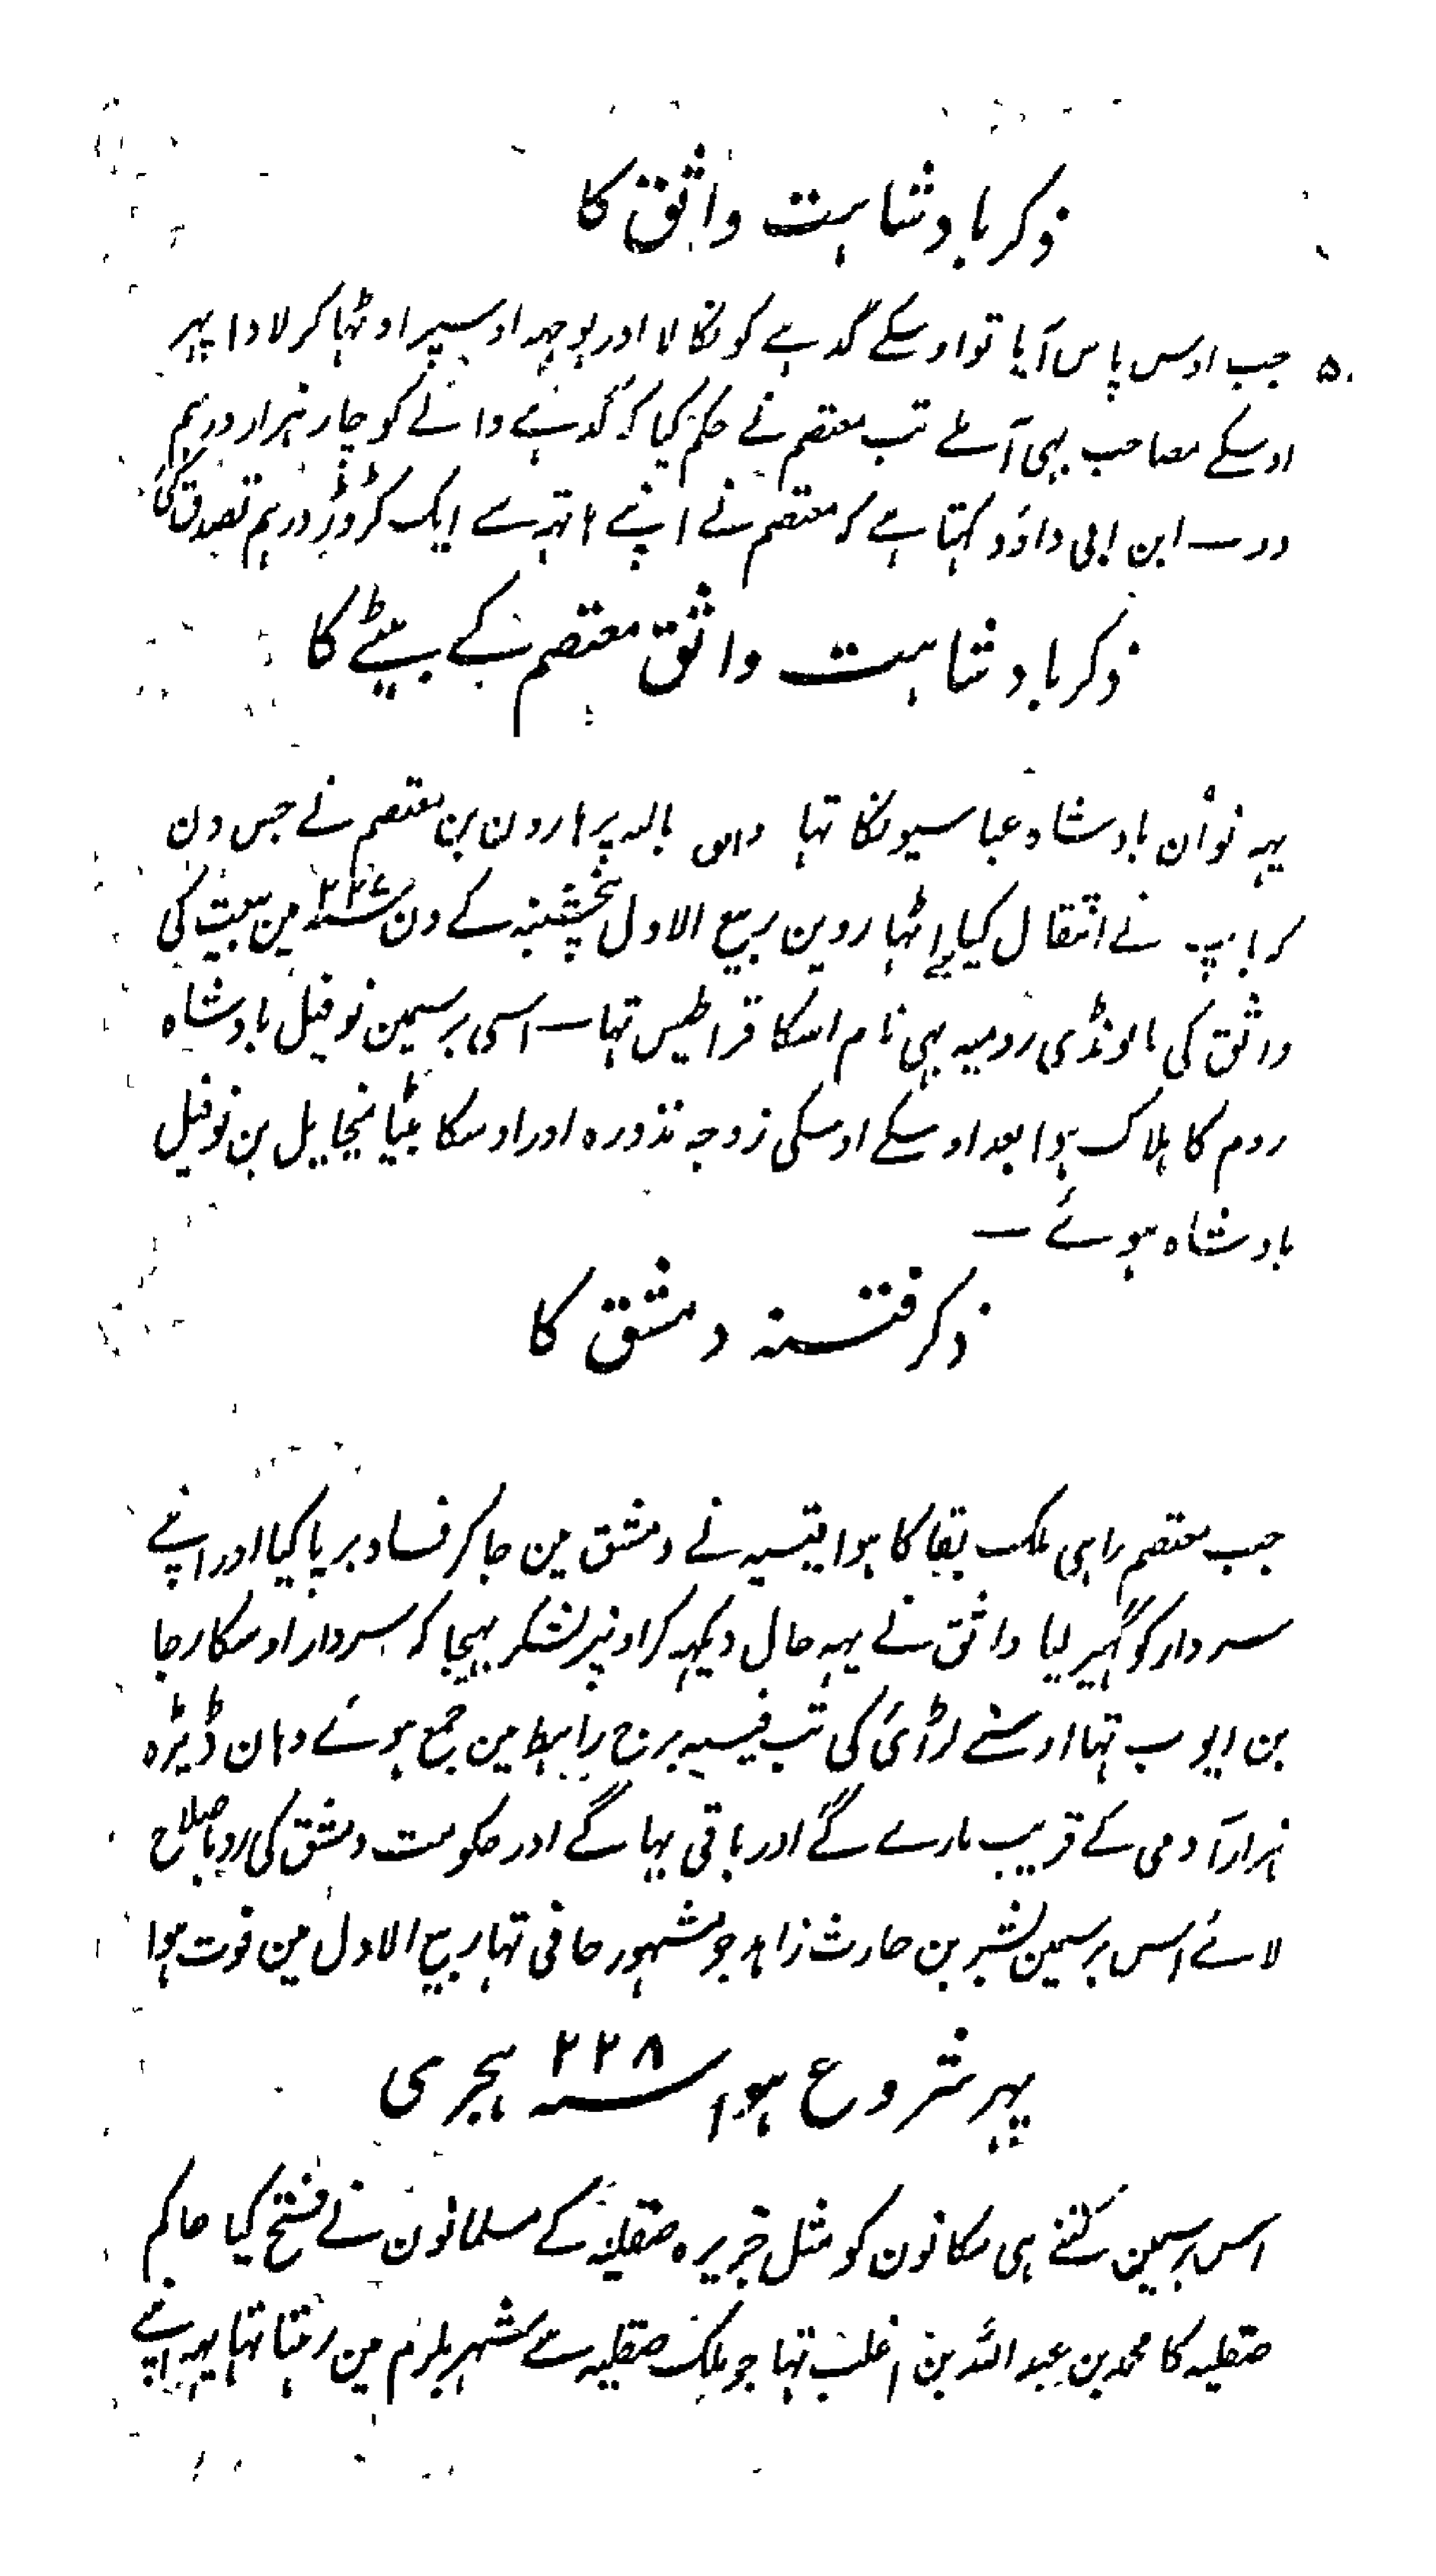 ذکر بادشاہت واثق کا
۵۰ جب اوس پاس آیا تو اوسکے گدہے کو نکالا اور بوجہہ اوسپر اوٹہا کر لادا پہر
اوسکے مصاحب بہی آملے تب معتصم نے حکم کیا کہ گدہے والے کو چار ہزار درہم
دو — ابن ابی داؤد کہتا ہے کہ معتصم نے اپنے ہاتہہ سے ایک کڑوڑ درہم تصدق کئی
ذکر بادشاہت واثق معتصم کے بیٹے کا
یہہ نوان بادشاہ عباسیونکا تہا واثق باللہ پر ہارون بن معتصم نے جس دن
کہ باپ نے انتقال کیا اٹہاروین ربیع الاول پنجشنبہ کے دن ۲۲۷؁ مین بیعت کی
واثق کی ما لونڈی رومیہ بہی نام اسکا قراطیس تہا — اسی برسمین نوفیل بادشاہ
روم کا ہلاک ہوا بعد اوسکے اوسکی زوجہ تذورہ اور اوسکا بیٹا میخایل بن نوفیل
بادشاہ ہوئے —
ذکر فتنہ دمشق کا
جب معتصم راہی ملک بقا کا ہوا قیسیہ نے دمشق مین جا کر فساد برپا کیا اور اپنے
سردار کو گہیر لیا واثق نے یہہ حال دیکہہ کر اونپر لشکر بہیجا کہ سردار اوسکا رجا
بن ایوب تہا اوسنے لڑائی کی تب قیسیہ مرج راہط مین جمع ہوئے وہان ڈیڑہ
ہزار آدمی کے قریب مارے گے اور باقی بہاگے اور حکومت دمشق کی روباصلاح
لائے اس برسمین بشر بن حارث زاہد جو مشہور حافی تہا ربیع الاول مین فوت ہوا
پہر شروع ہوا ۲۲۸؁ ہجری
اس برسمین کتنے ہی مکانون کو مثل جزیرہ صقلیہ کے مسلمانون نے فتح کیا حاکم
صقلیہ کا محمد بن عبد اللہ بن اغلب تہا جو ملک صقلیہ سے شہر بلرم مین رہتا تہا یہہ اپنے